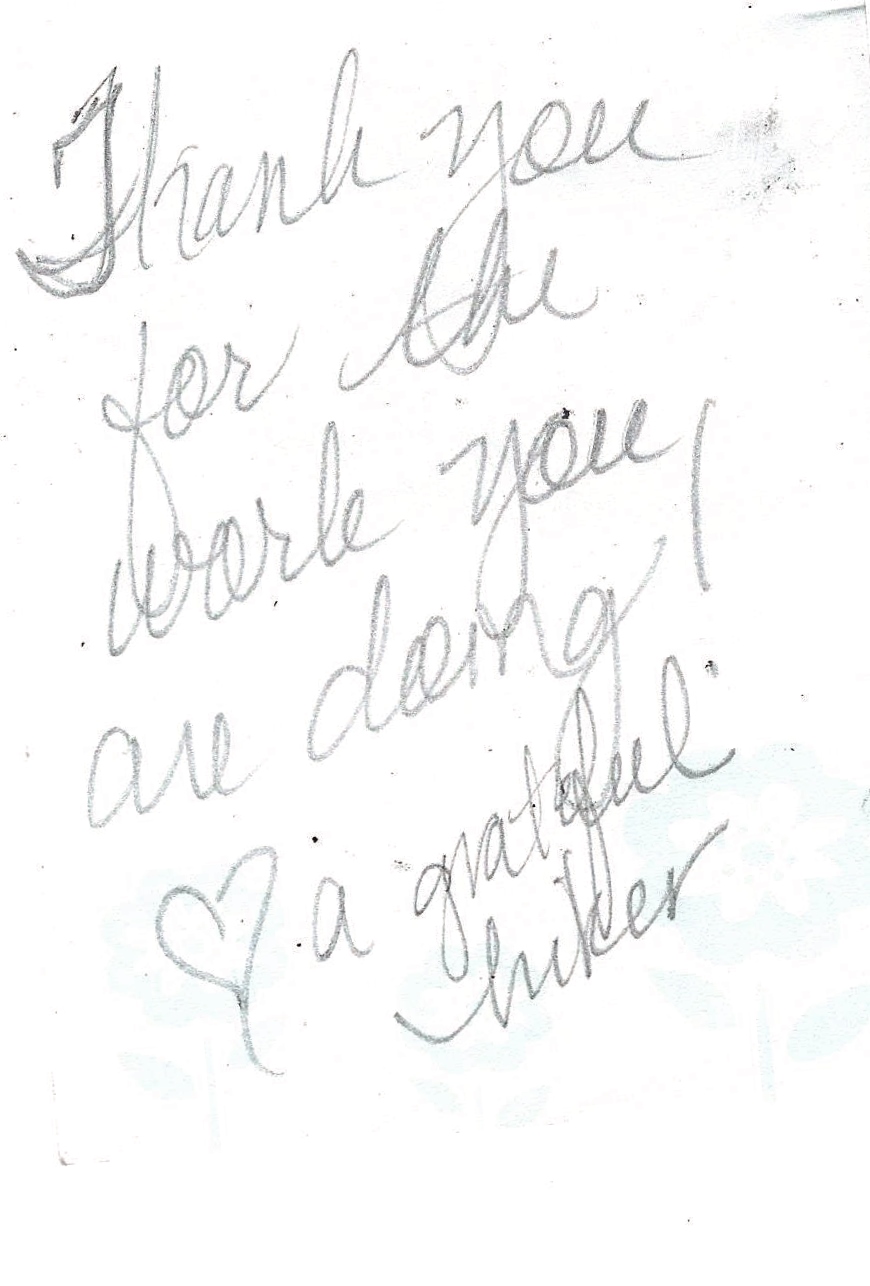 Thank you
for the
work you
are doing!
♡ a grateful
hiker